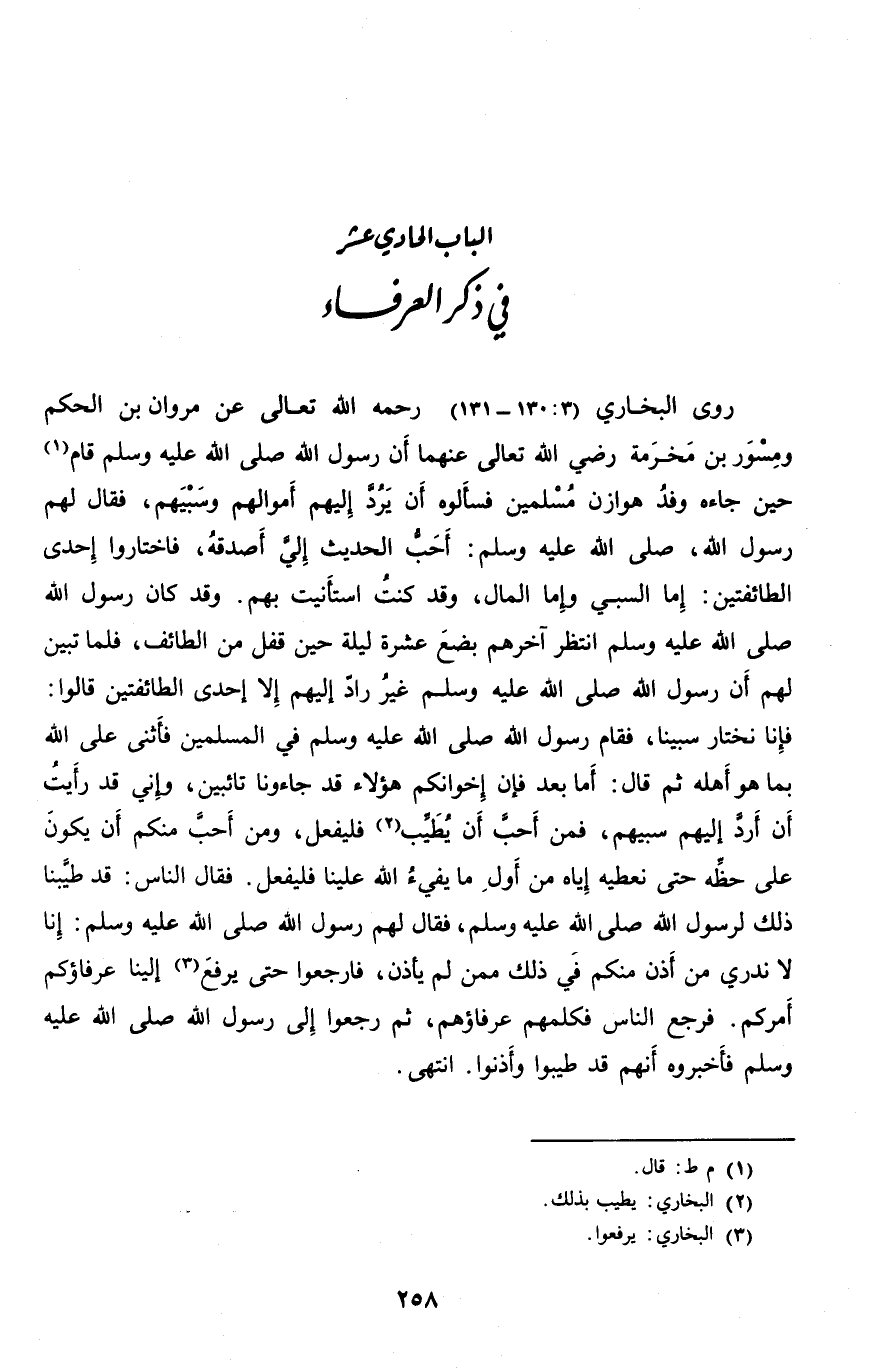 الباب الحادي عشر
في ذكر العرفاء
روى البخاري (٣: ١٣٠ - ١٣١) رحمه الله تعالى عن مروان بن الحكم
ومِسْوَر بن مَخرَمة رضي الله تعالى عنهما أن رسول الله صلى الله عليه وسلم قام(١)
حين جاءه وفدُ هوازن مُسْلمين فسألوه أن يَرُدَّ إليهم أموالهم وسَبْيَهم، فقال لهم
رسول الله، صلى الله عليه وسلم: أَحَبُّ الحديث إليَّ أصدقهُ، فاختاروا إحدى
الطائفتين: إما السبي وإما المال، وقد كنتُ استأنيت بهم. وقد كان رسول الله
صلى الله عليه وسلم انتظر آخرهم بضعَ عشرة ليلة حين قفل من الطائف، فلما تبين
لهم أن رسول الله صلى الله عليه وسلم غيرُ رادّ إليهم إلا إحدى الطائفتين قالوا:
فإنا نختار سبينا، فقام رسول الله صلى الله عليه وسلم في المسلمين فأثنى على الله
بما هو أهله ثم قال: أما بعد فإن إخوانكم هؤلاء قد جاءونا تائبين، وإني قد رأيتُ
أن أردَّ إليهم سبيهم، فمن أحبَّ أن يُطَيِّب(٢) فليفعل، ومن أحبَّ منكم أن يكونَ
على حظِّه حتى نعطيه إياه من أولِ ما يفيءُ الله علينا فليفعل. فقال الناس: قد طيَّبنا
ذلك لرسول الله صلى الله عليه وسلم، فقال لهم رسول الله صلى الله عليه وسلم: إنا
لا ندري من أذن منكم في ذلك ممن لم يأذن، فارجعوا حتى يرفعَ(٣) إلينا عرفاؤكم
أمركم. فرجع الناس فكلمهم عرفاؤهم، ثم رجعوا إلى رسول الله صلى الله عليه
وسلم فأخبروه أنهم قد طيبوا وأذنوا. انتهى.
(١) م ط: قال.
(٢) البخاري: يطيب بذلك.
(٣) البخاري: يرفعوا.
٢٥٨